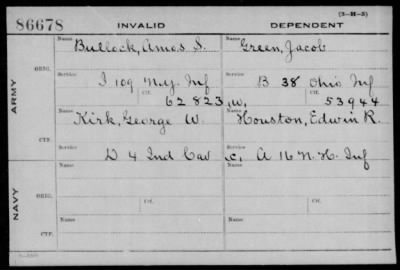 (3-H-5)
86678 INVALID DEPENDENT
Name Bullock, Amos S. Name Green, Jacob
ARMY
ORIG.
Service Service
I 109 N.Y. Inf B 38 Ohio Inf
Ctf. 62823 W. Ctf. 53944
Name Kirk, George W. Name Houston, Edwin R.
CTF.
Service Service
D 4 Ind Cav C. A 16 N.H. Inf
NAVY
ORIG.
Name Name
Service Ctf. Service Ctf.
CTF.
Name Name
Service Service